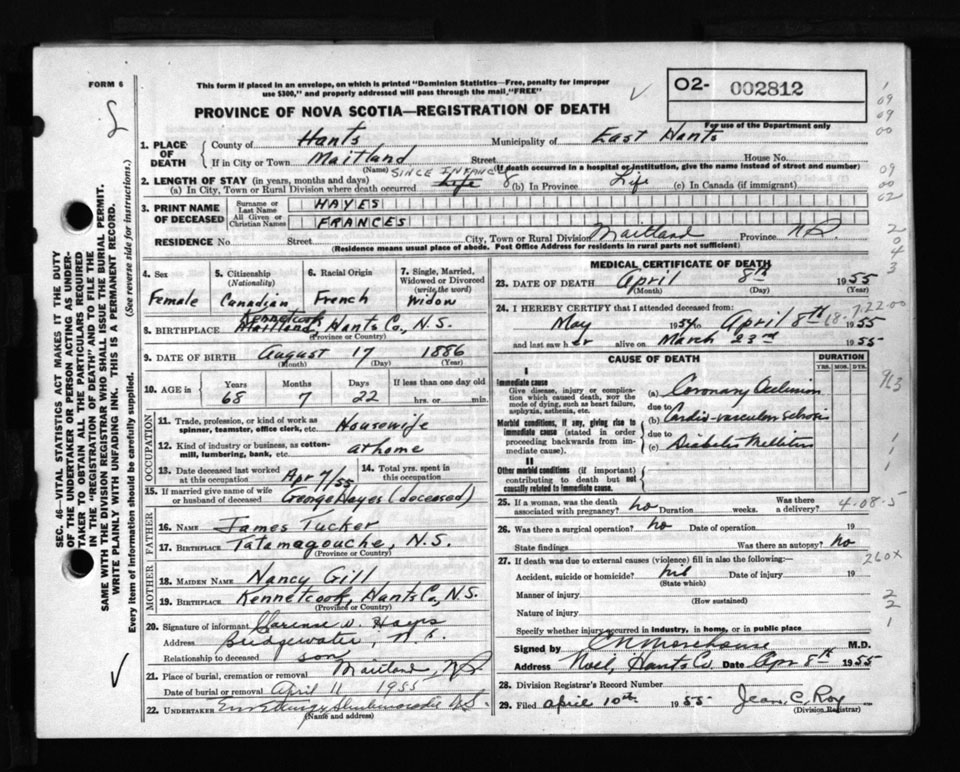 FORM 6
This form if placed in an envelope, on which is printed "Dominion Statistics—Free, penalty for improper
use $300," and properly addressed will pass through the mail, "FREE"
PROVINCE OF NOVA SCOTIA—REGISTRATION OF DEATH
O2- 002812
For use of the Department only
SEC. 46—VITAL STATISTICS ACT MAKES IT THE DUTY
OF THE UNDERTAKER OR PERSON ACTING AS UNDER-
TAKER TO OBTAIN ALL THE PARTICULARS REQUIRED
IN THE "REGISTRATION OF DEATH" AND TO FILE THE
SAME WITH THE DIVISION REGISTRAR WHO SHALL ISSUE THE BURIAL PERMIT.
WRITE PLAINLY WITH UNFADING INK. THIS IS A PERMANENT RECORD.
Every item of information should be carefully supplied. (See reverse side for instructions.)
1. PLACE OF DEATH
County of Hants Municipality of East Hants
If in City or Town Maitland Street House No.
(Name) (If death occurred in a hospital or institution, give the name instead of street and number)
2. LENGTH OF STAY (in years, months and days) SINCE INFANCY
(a) In City, Town or Rural Division where death occurred Life (b) In Province Life (c) In Canada (if immigrant)
3. PRINT NAME OF DECEASED
Surname or Last Name HAYES
All Given or Christian Names FRANCES
RESIDENCE No. Street City, Town or Rural Division Maitland Province N.S.
(Residence means usual place of abode. Post Office Address for residents in rural parts not sufficient)
4. Sex Female
5. Citizenship (Nationality) Canadian
6. Racial Origin French
7. Single, Married, Widowed or Divorced (write the word) Widow
Kennetcook
8. BIRTHPLACE Maitland Hants Co., N.S.
(Province or Country)
9. DATE OF BIRTH August 17 1886
(Month) (Day) (Year)
10. AGE in Years 68 Months 7 Days 22 If less than one day old hrs. or min.
OCCUPATION
11. Trade, profession or kind of work as spinner, teamster, office clerk, etc. Housewife
12. Kind of industry or business, as cotton-mill, lumbering, bank, etc. at home
13. Date deceased last worked at this occupation Apr 7/55
14. Total yrs. spent in this occupation
15. If married give name of wife or husband of deceased George Hayes (deceased)
FATHER
16. NAME James Tucker
17. BIRTHPLACE Tatamagouche, N.S.
(Province or Country)
MOTHER
18. MAIDEN NAME Nancy Gill
19. BIRTHPLACE Kennetcook, Hants Co, N.S.
(Province or Country)
20. Signature of informant Clarence W. Hayes
Address Bridgewater, N.S.
Relationship to deceased son
21. Place of burial, cremation or removal Maitland, N.S.
Date of burial or removal April 11 1955
22. UNDERTAKER Shubenacadie N.S.
(Name and address)
MEDICAL CERTIFICATE OF DEATH
23. DATE OF DEATH April 8th 1955
(Month) (Day) (Year)
24. I HEREBY CERTIFY that I attended deceased from:
May 1954 to April 8th 1955
and last saw her alive on March 23rd 1955
CAUSE OF DEATH
DURATION
YRS. MOS. DYS.
I
Immediate cause
Give disease, injury or complication which caused death, not the mode of dying, such as heart failure, asphyxia, asthenia, etc.
(a) Coronary Occlusion
due to
Morbid conditions, if any, giving rise to immediate cause (stated in order proceeding backwards from immediate cause).
(b) Cardio-vascular sclerosis
due to
(c) Diabetes Mellitus
II
Other morbid conditions (if important) contributing to death but not causally related to immediate cause.
25. If a woman, was the death associated with pregnancy? no Duration weeks. Was there a delivery?
4-08-5
26. Was there a surgical operation? no Date of operation 19
State findings Was there an autopsy? no
27. If death was due to external causes (violence) fill in also the following:—
Accident, suicide or homicide? Date of injury 19
(State which)
Manner of injury
(How sustained)
Nature of injury
Specify whether injury occurred in industry, in home, or in public place
Signed by C N Morehouse M.D.
Address Noel, Hants Co. Date Apr 8th 1955
28. Division Registrar's Record Number
29. Filed April 10th 1955 Jean C. Roy
(Division Registrar)
1
09
09
00
09
00
02
2
0
4
3
7-22-00
963
1
1
260X
2
2
1